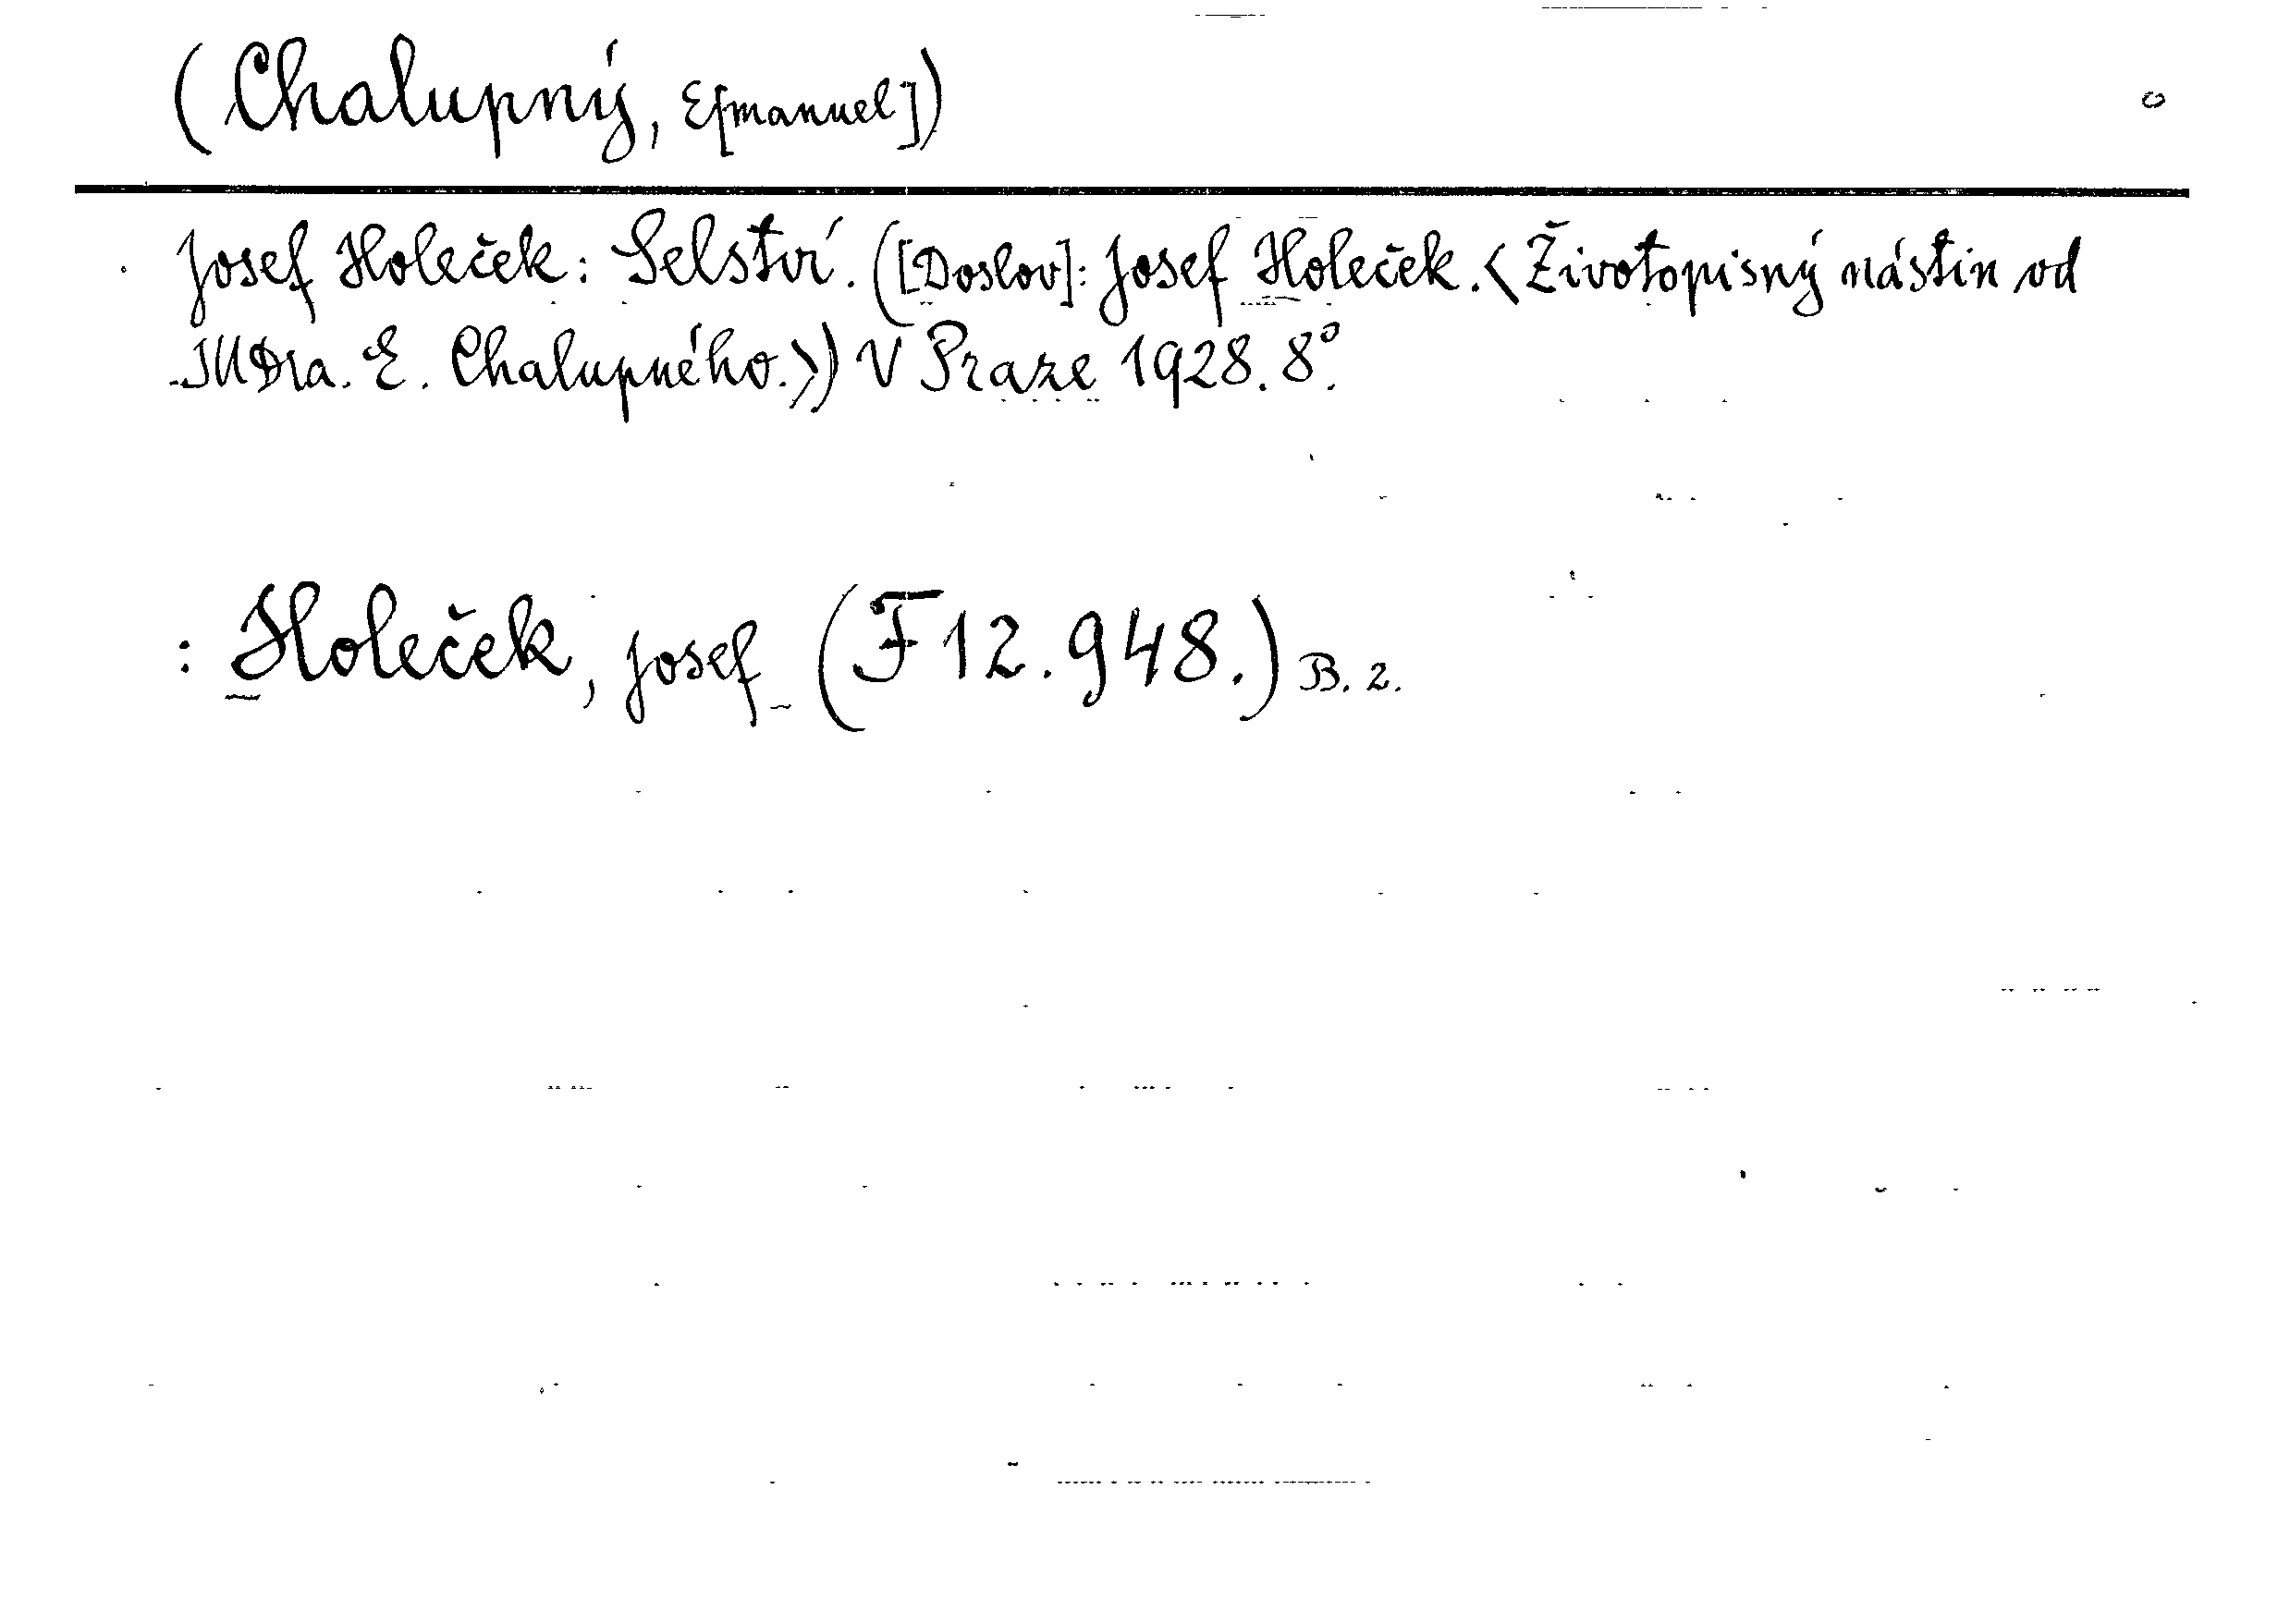 (Chalupný, E[manuel])
Josef Holeček: Selství. ([Doslov]: Josef Holeček. <Životopisný nástin od
JUDra. E. Chalupného.>) V Praze 1928. 8°.
: Holeček, Josef (F 12.948.) B. 2.